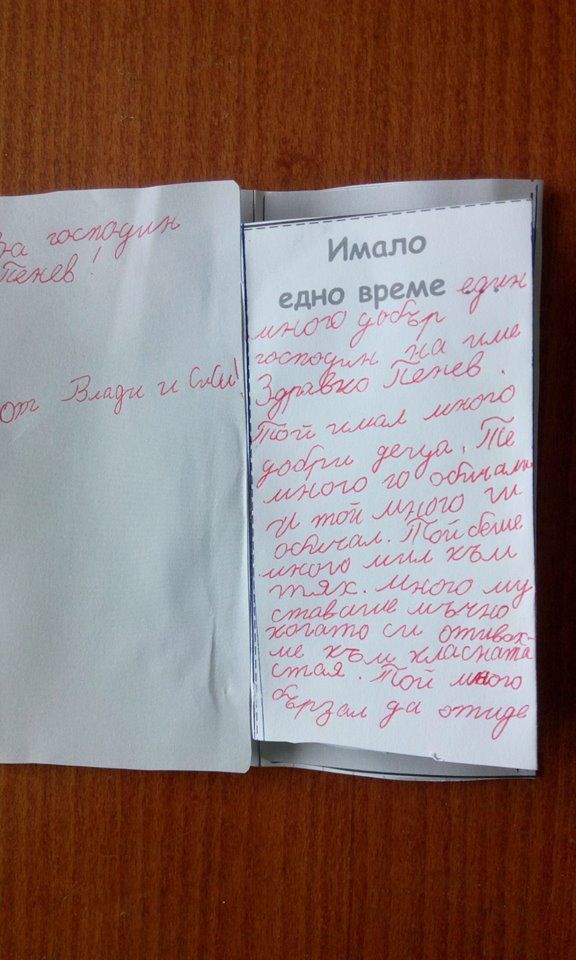 За господин
Пенев!
От Влади и Сиси!
Имало
едно време . . .
един
много добър
господин на име
Здравко Пенев.
Той имал много
добри деца. Те
много го обичали
и той много ги
обичал. Той беше
много мил към
тях. Много му
ставаше мъчно
когато си отивах-
ме към класната
стая. Той много
бързал да отиде